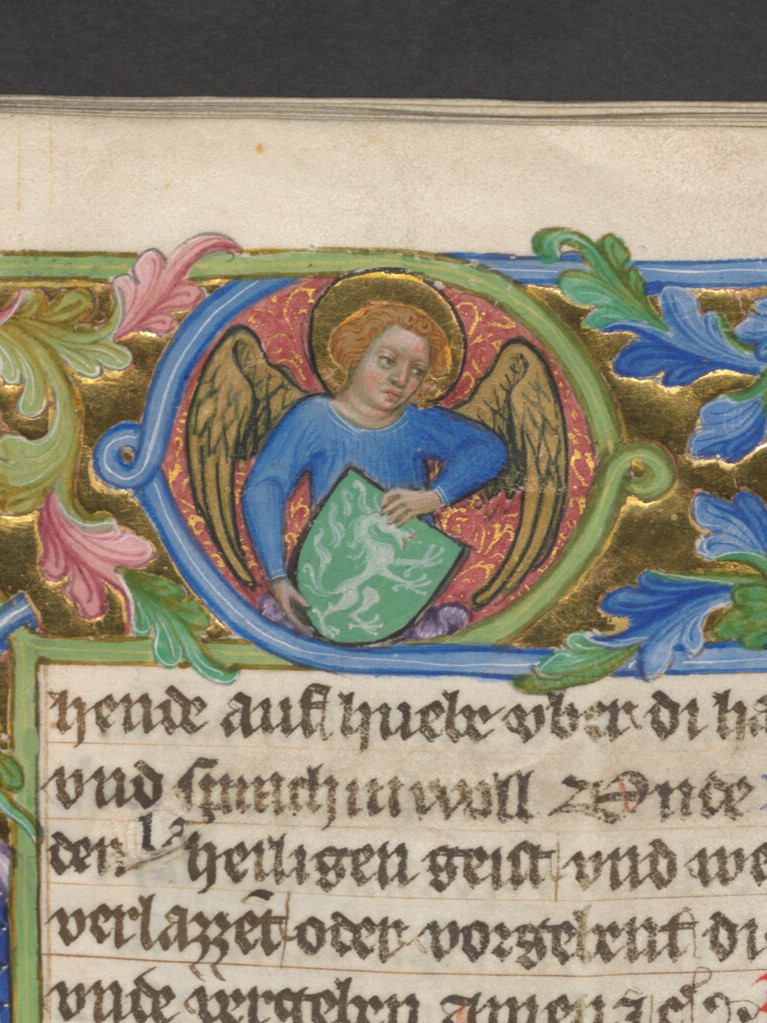 hende auf huebe vber di ha
vnd sprach in woll Vnde
den heiligen geist vnd we
verlazzet oder di
vnde vergeben amen